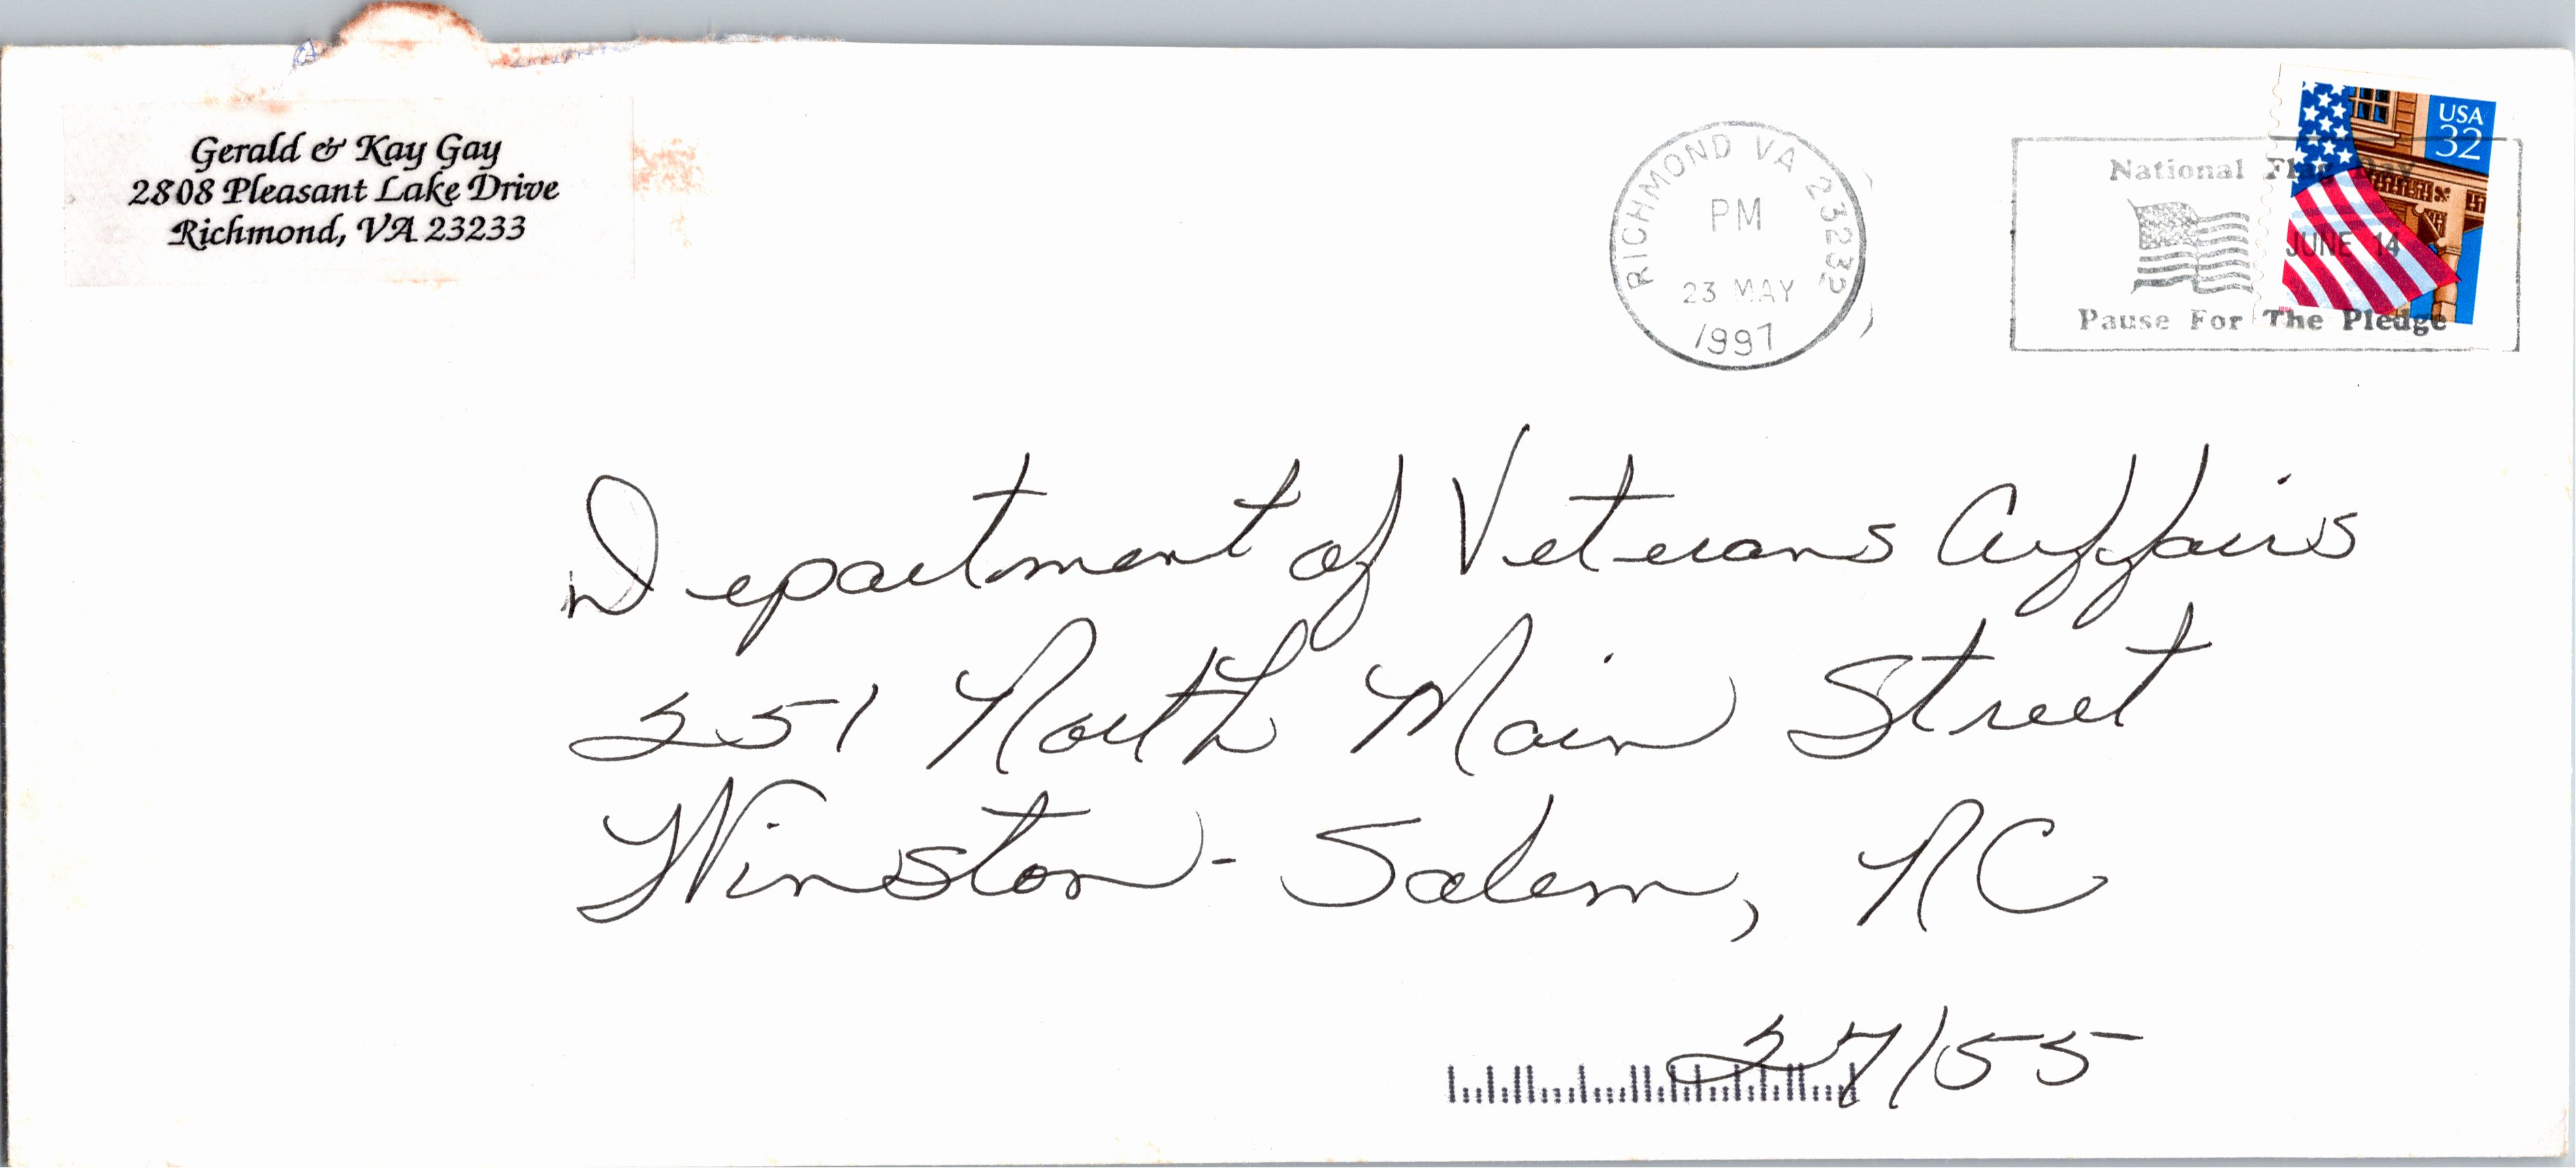 Gerald & Kay Gay
2808 Pleasant Lake Drive
Richmond, VA 23233
RICHMOND VA 23232
PM
23 MAY
1997
National Flag Day
JUNE 14
Pause For The Pledge
USA
32
Department of Veterans Affairs
251 North Main Street
Winston-Salem, NC
27155